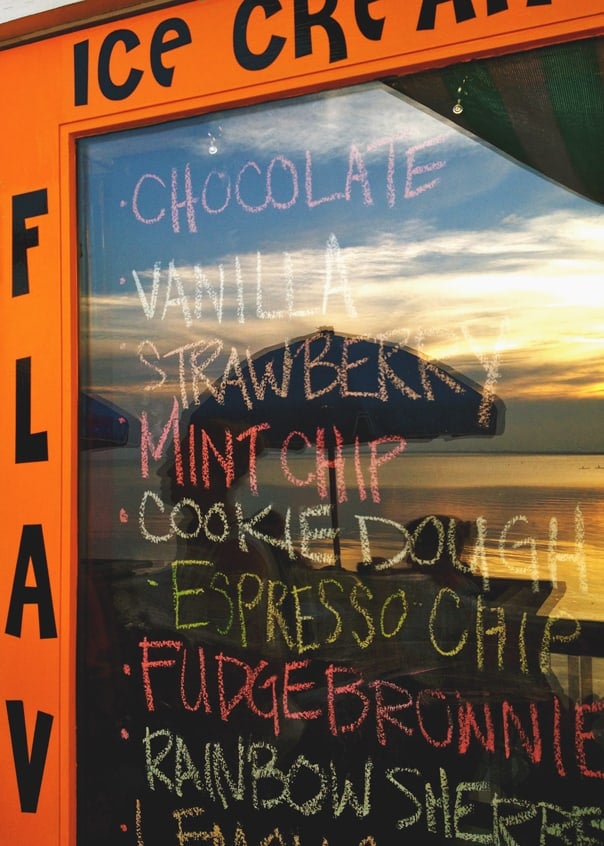 ICE CREAM
FLAV
· CHOCOLATE
· VANILLA
· STRAWBERRY
· MINT CHIP
· COOKIE DOUGH
· ESPRESSO CHIP
· FUDGE BROWNIE
· RAINBOW SHERBE